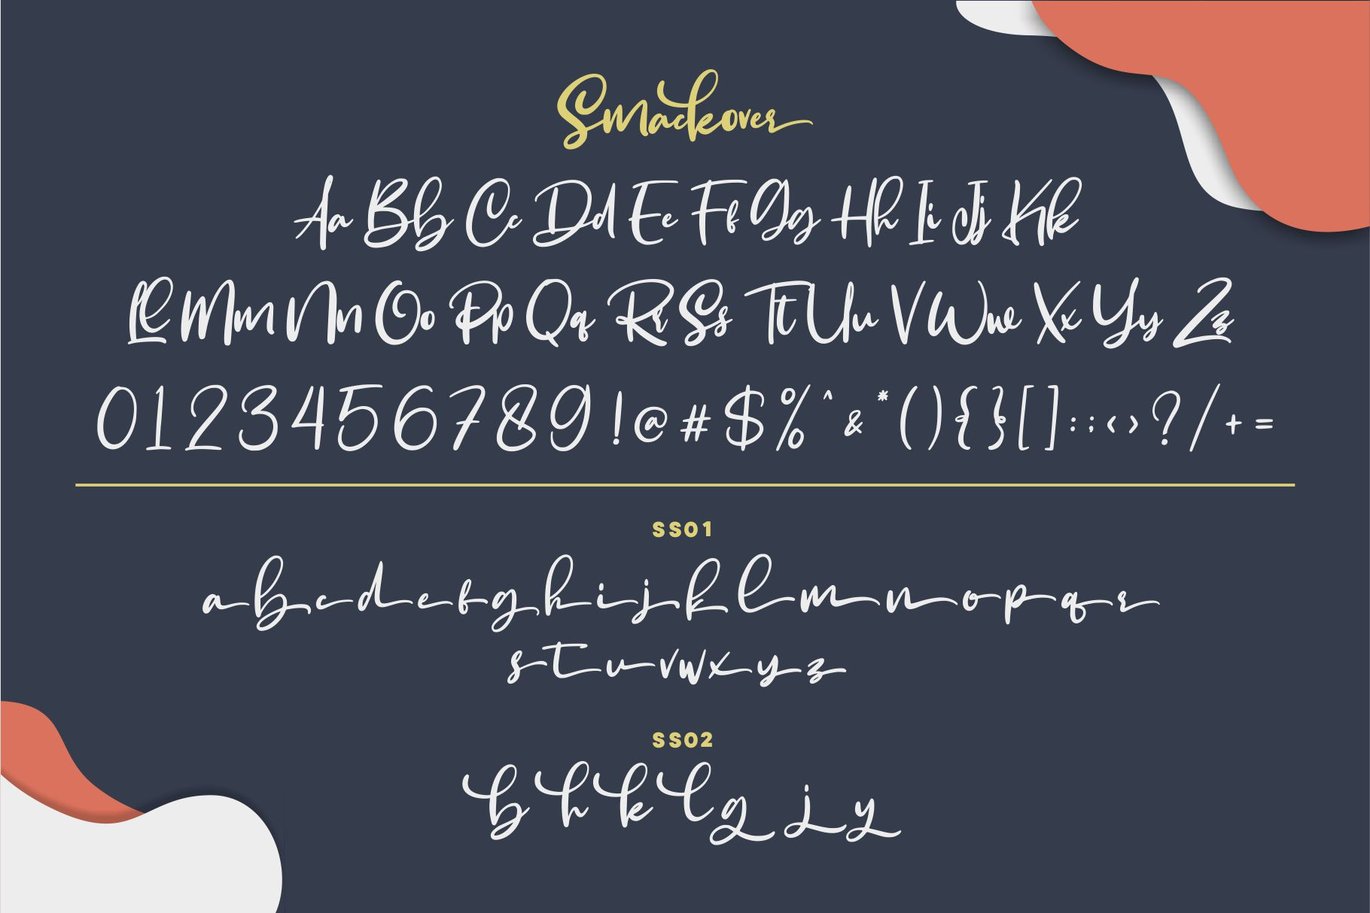 Smackover
Aa Bb Cc Dd Ee Ff Gg Hh Ii Jj Kk
Ll Mm Nn Oo Pp Qq Rr Ss Tt Uu V Ww Xx Yy Zz
0123456789 ! @ # $ % ^ & * ( ) { } [ ] : ; < > ? / + =
SS01
a b c d e f g h i j k l m n o p q r
s t u v w x y z
SS02
b h k l g j y